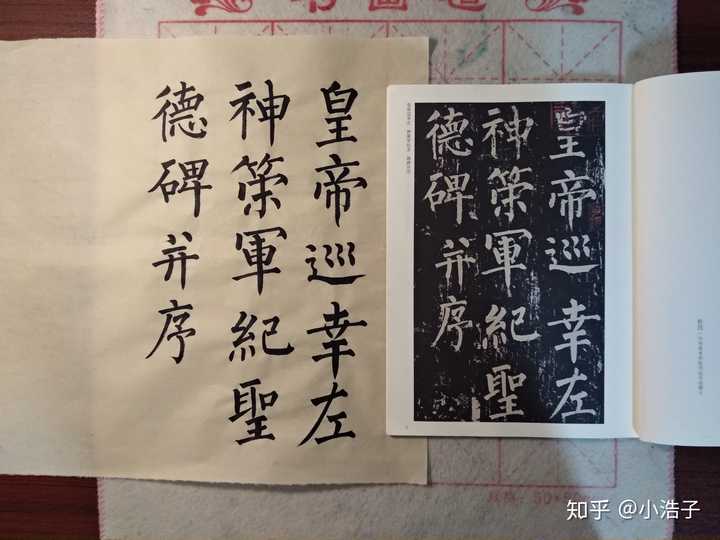 皇帝巡幸左
神策軍紀聖
德碑并序
皇帝巡幸左
神策軍紀聖
德碑并序
知乎 @小浩子